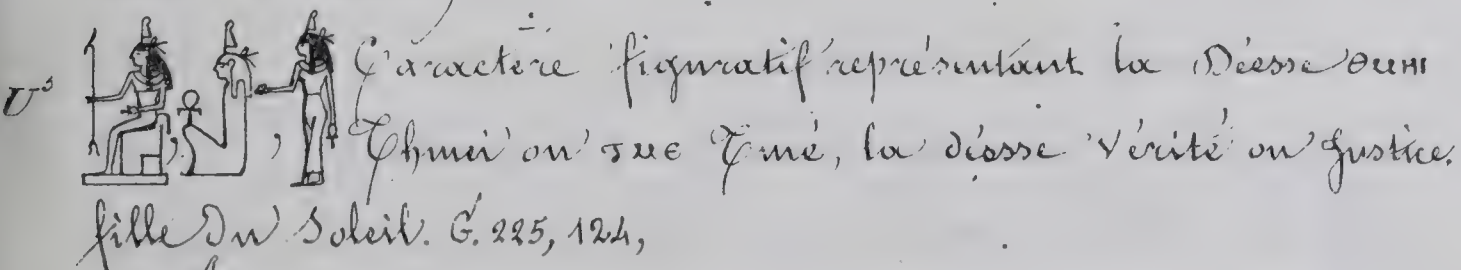 U³ , , Caractère figuratif représentant la Déesse ⲑⲙⲏⲓ
Thméi ou ⲧⲙⲉ Tmé, la déesse Vérité ou Justice.
fille du Soleil. G. 225, 124,